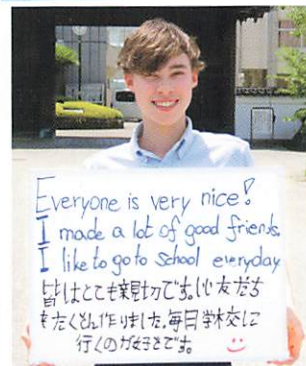 Everyone is very nice!
I made a lot of good friends.
I like to go to School everyday
皆はとても親切です。いい友だち
をたくさん作りました。毎日学校に
行くのが好きです。